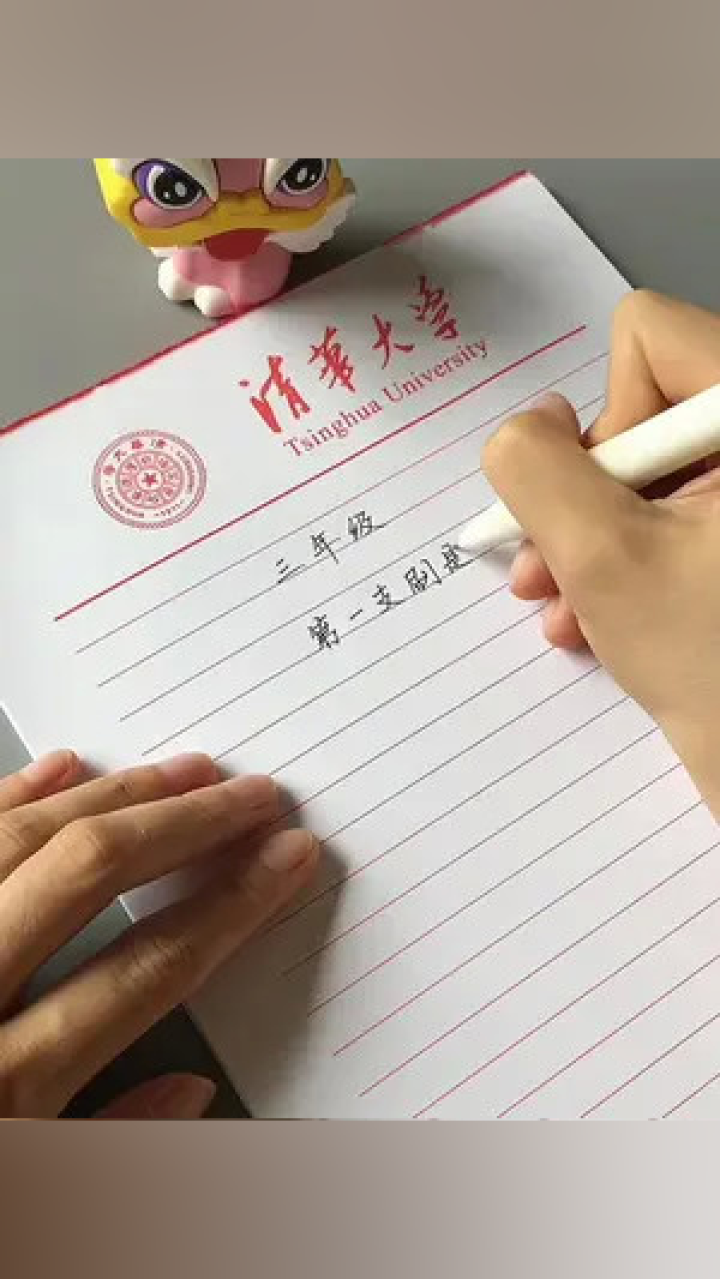 清华大学
Tsinghua University
三年级
第一支刷